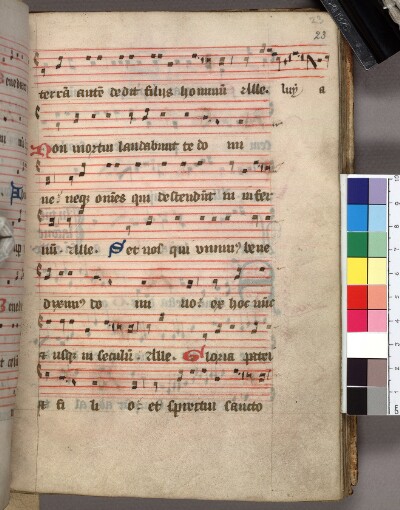 23
23
terrā autē dedit filijs hominū Alle. luy a
Non mortui laudabunt te do mi
ne: neqʒ omēs qui descendūt in infer
nū. Alle. Set nos qui viuimꝰ bene
diximꝰ do mi no: ex hoc nūc
⁊ usqʒ in seculū. Alle. Gloria patri
et fi li o: et spiritui sancto